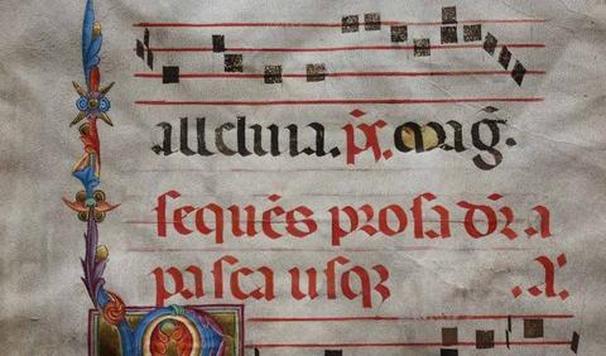 alleluia. p̄x. maḡ.
sequēs prosa dr̄ a
pasca usqꝫ .A.